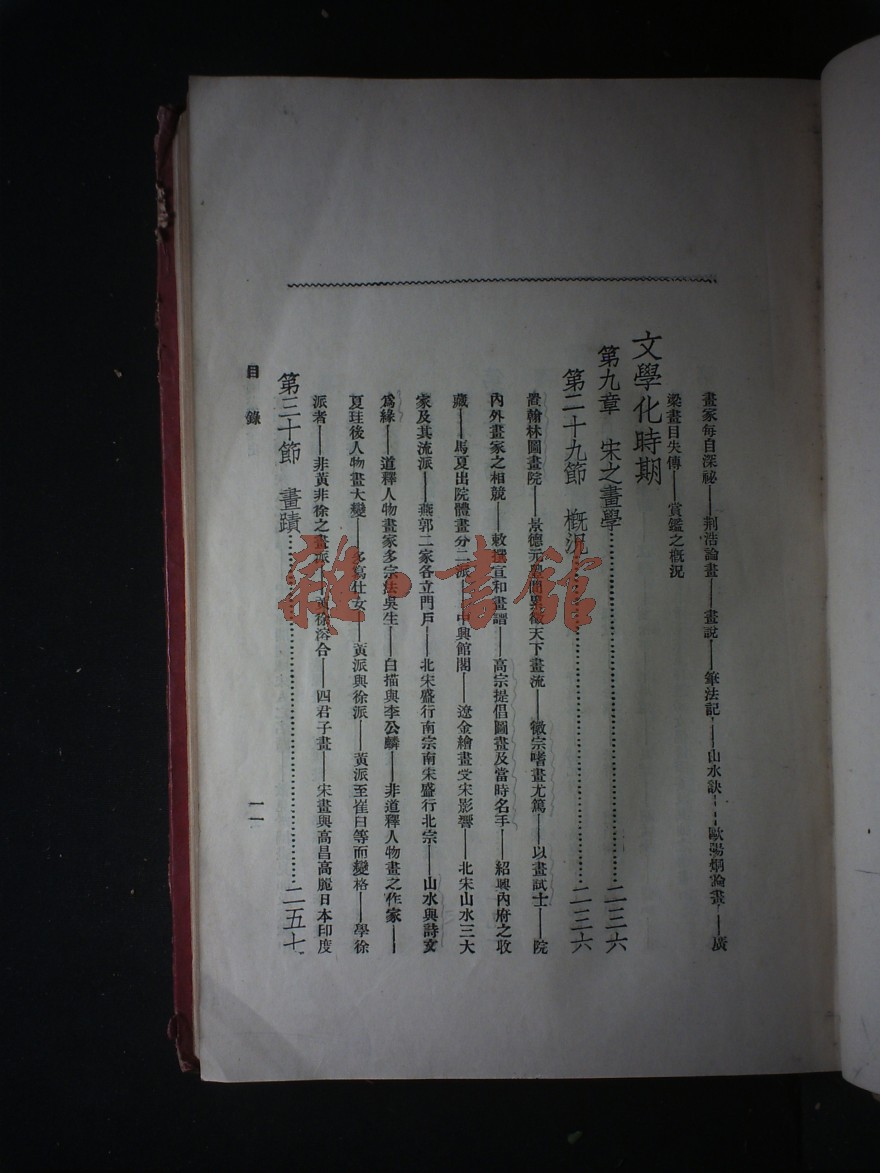 畫家每自深祕——荆浩論畫——畫說——筆法記——山水訣——歐陽炯論畫——廣
梁畫目失傳——賞鑑之概況
文學化時期
第九章　宋之畫學……二三六
第二十九節　概況……二三六
置翰林圖畫院——景德元　間畢徵天下畫流——徽宗嗜畫尤篤——以畫試士——院
內外畫家之相競——敕撰宣和畫譜——高宗提倡圖畫及當時名手——紹興內府之收
藏——馬夏出院體畫分二派——中興館閣——遼金繪畫受宋影響——北宋山水三大
家及其流派——燕郭二家各立門戶——北宋盛行南宗南宋盛行北宗——山水與詩文
爲緣——道釋人物畫家多宗法吳生——白描與李公麟——非道釋人物畫之作家——
夏珪後人物畫大變——多寫仕女——黃派與徐派——黃派至崔白等而變格——學徐
派者——非黃非徐之畫派——黃徐溶合——四君子畫——宋畫與高昌高麗日本印度
第三十節　畫蹟……二五七
目錄
一一
雜·書館